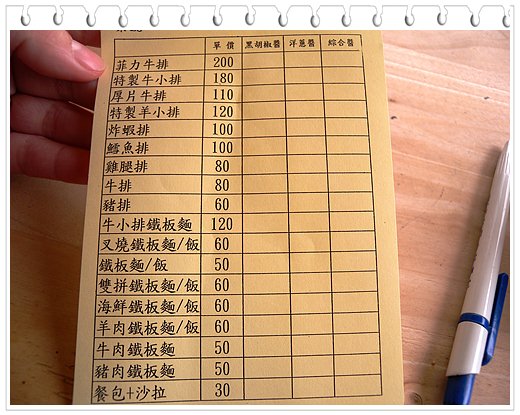 單價 黑胡椒醬 洋蔥醬 綜合醬
菲力牛排 200
特製牛小排 180
厚片牛排 110
特製羊小排 120
炸蝦排 100
鱈魚排 100
雞腿排 80
牛排 80
豬排 60
牛小排鐵板麵 120
叉燒鐵板麵/飯 60
鐵板麵/飯 50
雙拼鐵板麵/飯 60
海鮮鐵板麵/飯 60
羊肉鐵板麵/飯 60
牛肉鐵板麵 50
豬肉鐵板麵 50
餐包+沙拉 30